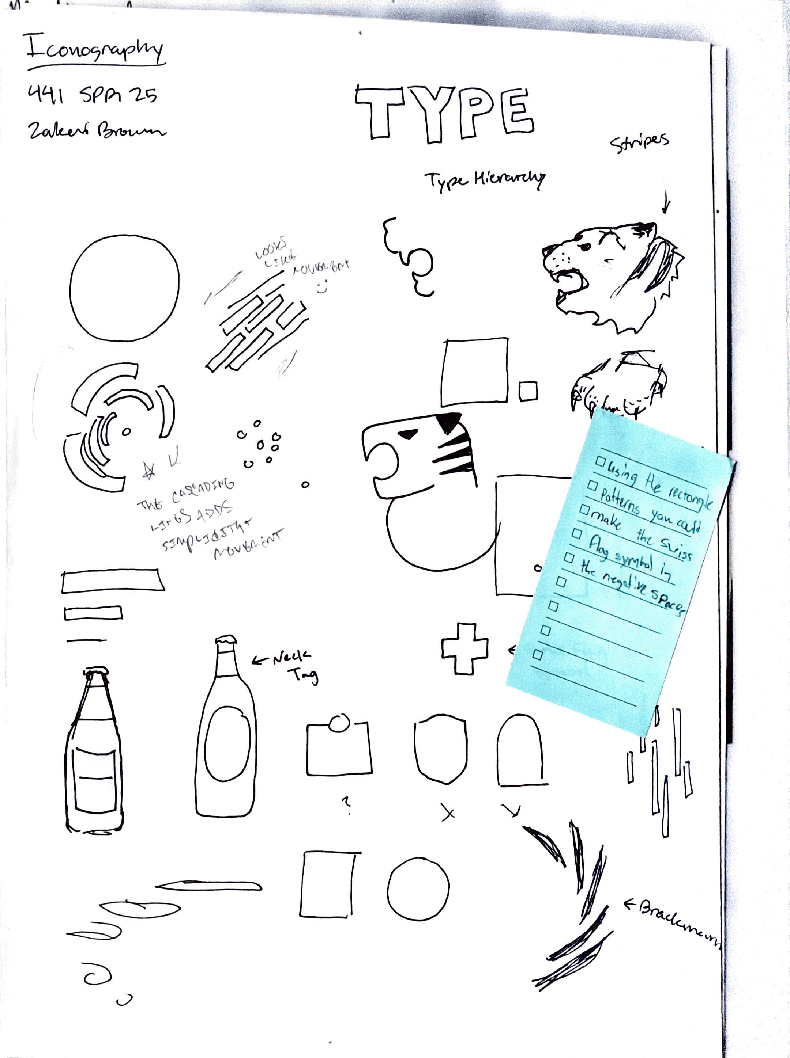 Iconography
441 SPR 25
Brown
TYPE
Type Hierarchy
Stripes
LOOKS
LIKE
MOVEMENT
THE CASCADING
LINES ADDS
SIMPLICITY +
MOVEMENT
using the rectangle
patterns you could
make the Swiss
flag symbol in
the negative space
← Neck
Tag
?
X
← Brockmann